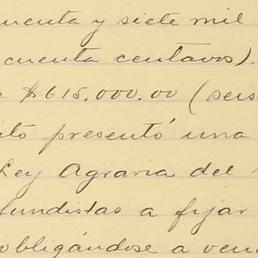 cuenta y siete mil
cuenta centavos).
$615,000.00 (seis
presentó una
Ley Agraria del
fundistas a fijar
obligándose a ven